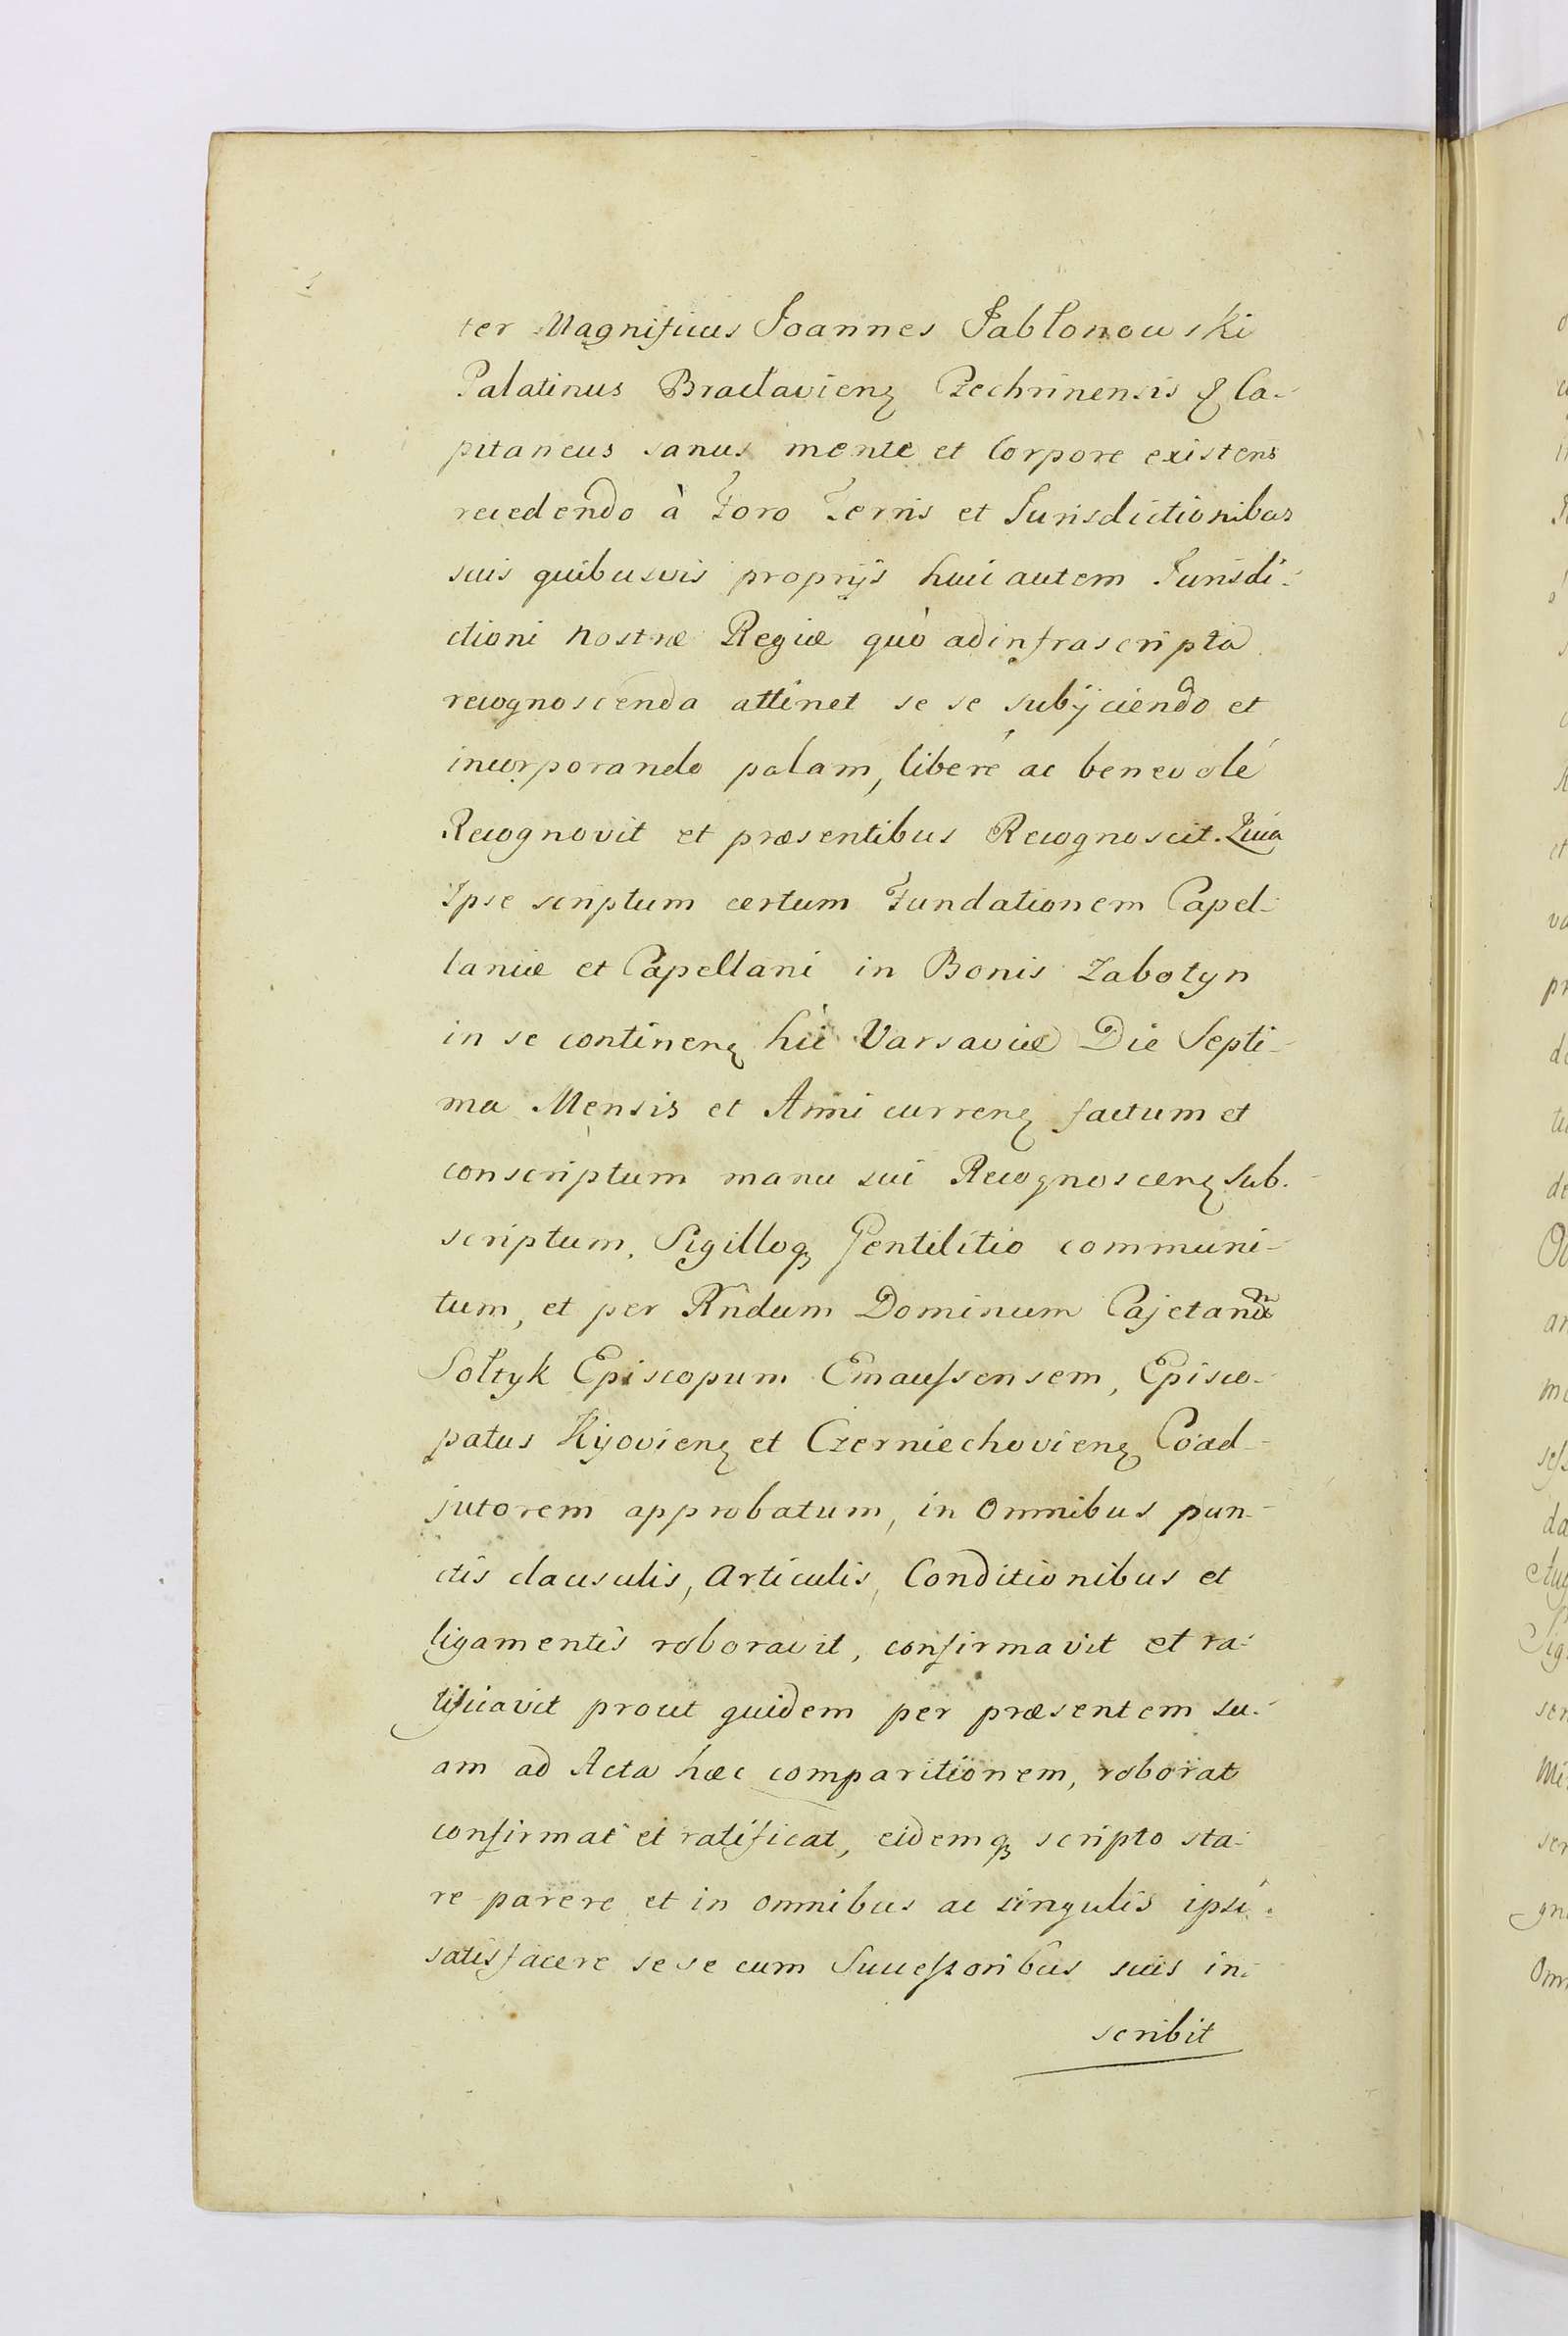 ter Magnificus Joannes Jabłonowski
Palatinus Bracłavienꝫ Czechrinensis & Ca-
pitaneus sanus mente et Corpore existens
recedendo à Foro Terris et Jurisdictionibus
suis quibusvis proprijs huic autem Jurisdi-
ctioni nostræ Regiæ quò ad infrascripta
recognoscenda attinet se se subijciendo et
incorporando palam, liberé ac benevolé
Recognovit et præsentibus Recognoscit. Quia
Ipse scriptum certum Fundationem Capel-
laniæ et Capellani in Bonis Zabotyn
in se continenꝫ hic Varsaviæ Die Septi-
ma Mensis et Anni currenꝫ factum et
conscriptum manu sui Recognoscenꝫ sub-
scriptum, Sigilloqꝫ Gentilitio communi-
tum, et per Rn̂dum Dominum Cajetanum
Sołtyk Episcopum Emaussensem, Episco-
patus Kijovienꝫ et Czerniechovienꝫ Coad-
jutorem approbatum, in Omnibus pun-
ctis clausulis, Articulis, Conditionibus et
ligamentis roboravit, confirmavit et ra-
tificavit prout quidem per præsentem su-
am ad Acta hæc comparitionem, roborat
confirmat et ratificat, eidemqꝫ scripto sta-
re parere et in omnibus ac singulis ipsi
satisfacere sese cum Successoribus suis in-
scribit